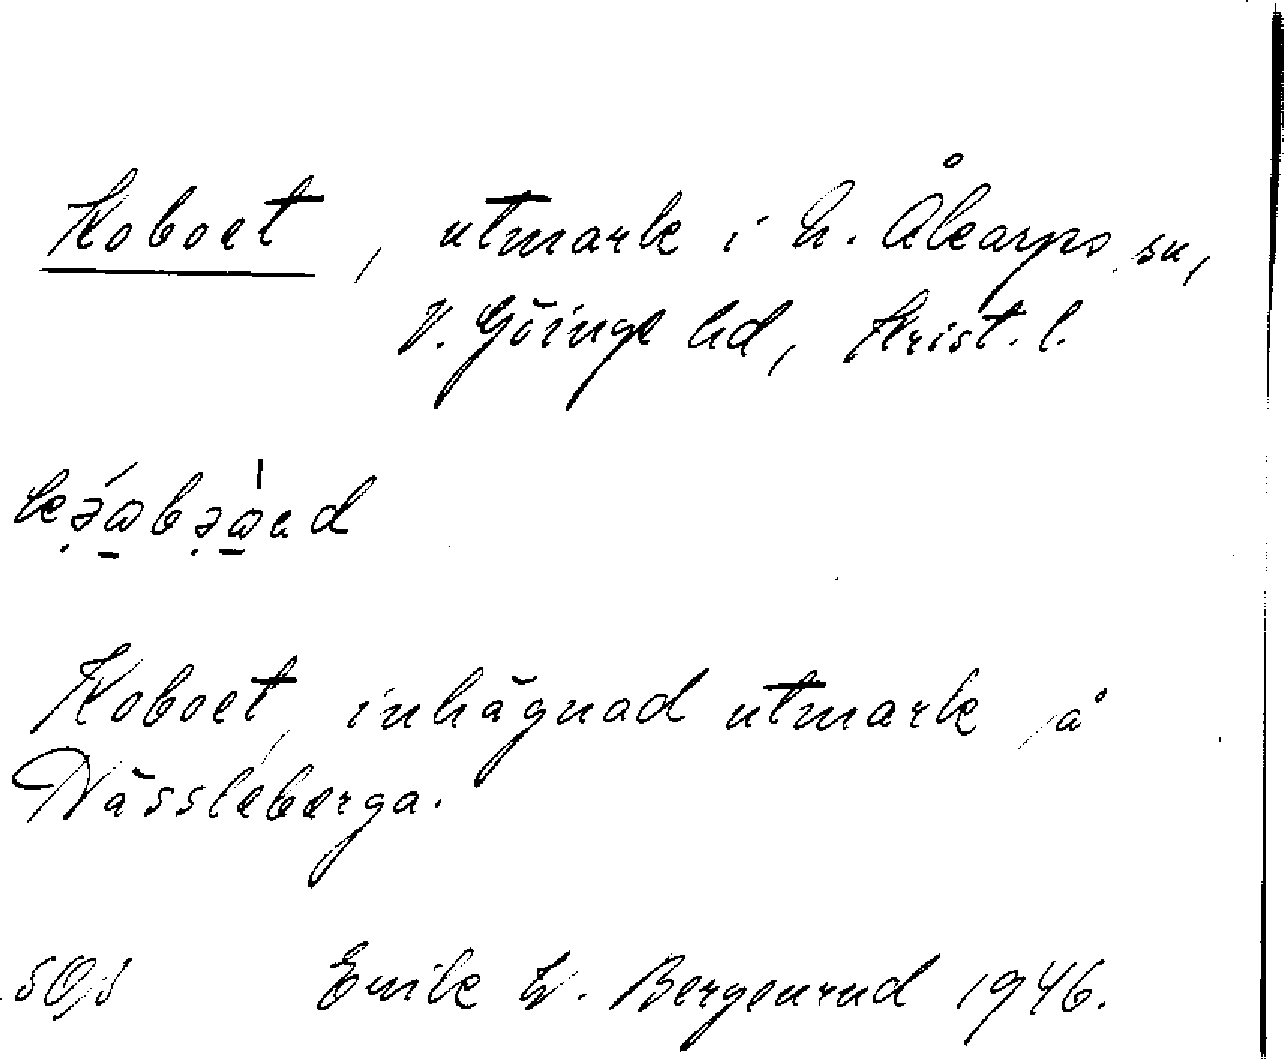 Koboet, utmark i N. Åkarps sn,
V. Göinge hd, Krist. l.
Koboet, inhägnad utmark på
Nässleberga.
Bergenrud 1946.